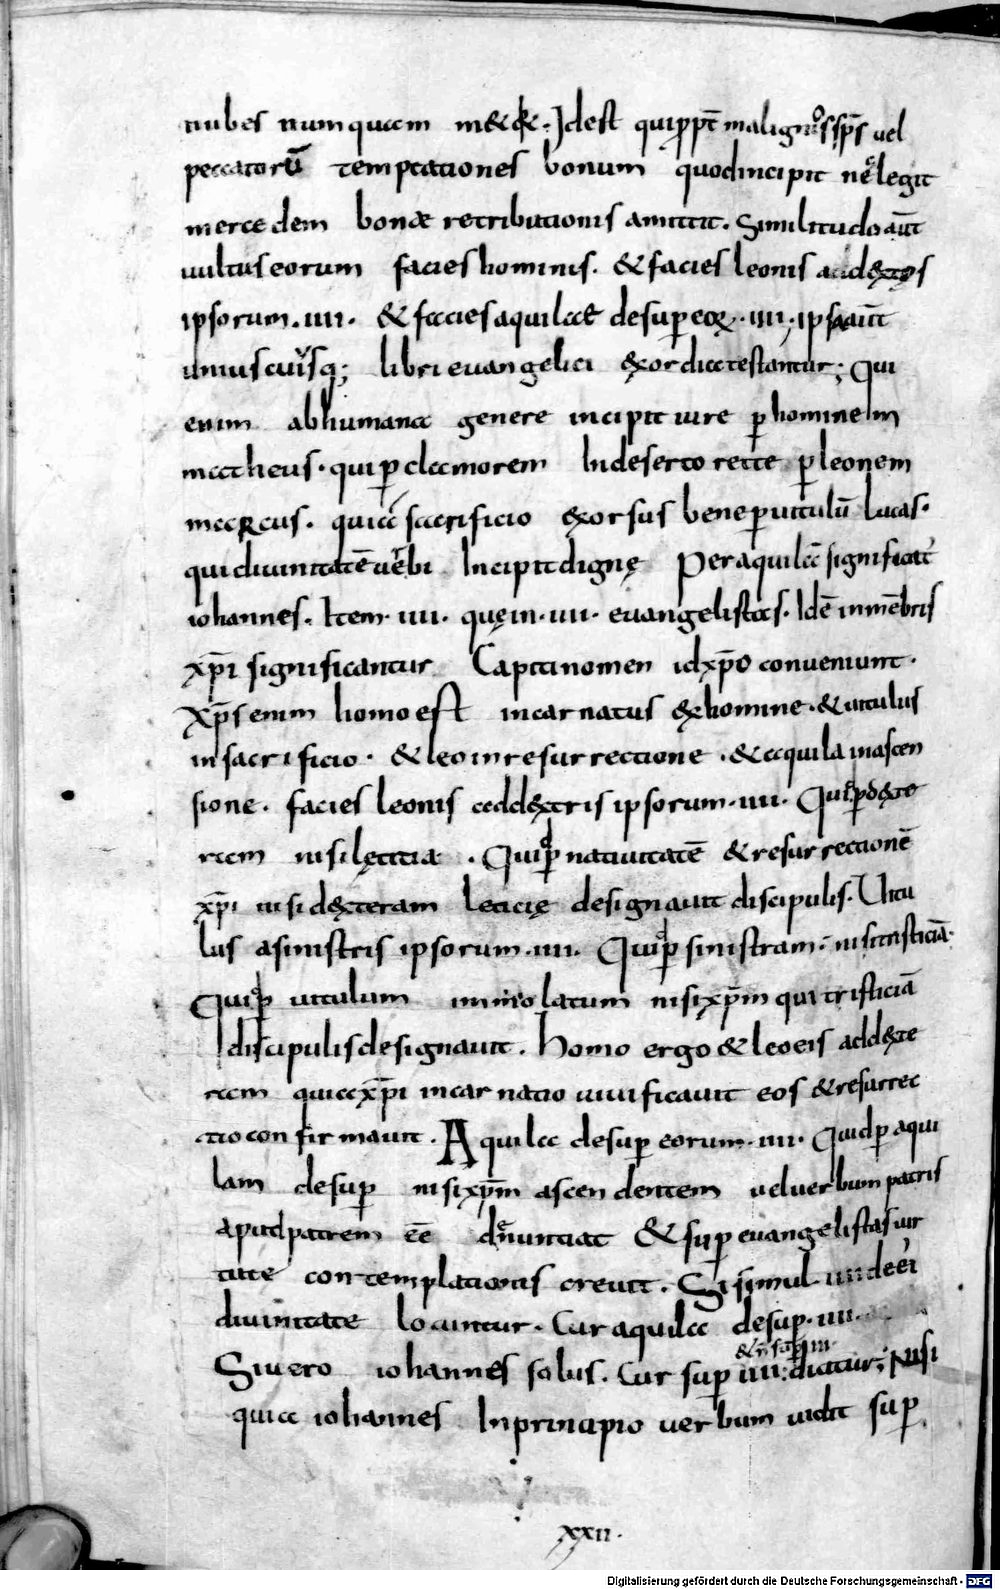 nubes numquam m&&. Idest quip̄pt̄ malignos sp̄s uel
peccatorū temptationes bonum quodincipit neglegit
mercedem bonae retributionis amittit. Similitudo aūt
uultus eorum facies hominis. & facies leonis addextris
ipsorum .iiii. & facies aquilae desup eoꝝ .iiii. ipsa aūt
uniuscuiusq; libri euangelici exordia testantur; Qui
enim abhumana genere incipit iure ꝑhominem
matheus. qui ꝑ clamorem Indeserto recte ꝑleonem
marcus. quia sacrificio exorsus bene ꝑuitulū lucas.
quidiuinitatē uerbi Incipit dignę Peraquilā significat̄
iohannes. Item .iiii. quęin .iiii. euangelistas. Idē inmēbris
xp̄i significantur Captinomen idxp̄o conueniunt.
Xp̄s enim homo est incarnatus exhomine. & uitulus
insacrificio. & leo inresurrectione. & aquila inascen
sione. facies leonis addextris ipsorum .iiii. Quid ꝑdexte
ram nisi lętitia. Quid ꝑ natiuitatē & resurrectionē
xp̄i nisi dexteram leticię designauit discipulis. Uitu
lus asinistris ipsorum .iiii. Quid ꝑ sinistram. nisi tristiciā.
Quid ꝑ uitulum immolatum nisi xp̄m qui tristiciā
discipulis designauit. homo ergo & leo eis addexte
ram quia xp̄i incarnatio uiuificauit eos & resurrec
tio confirmauit. Aquila desuꝑ eorum .iiii. Quid ꝑ aqui
lam desuꝑ nisi xp̄m ascendentem uel uerbum patris
apud patrem eē denuntiat & suꝑ euangelistas uir
tute contemplationis creuit. Si simul .iiii. de ei
diuinitate locuntur. Cur aquila desuꝑ .iiii.
& n̄ suꝑ .iii.
Siuero iohannes solus. Cur suꝑ .iiii. dicitur; Nisi
quia iohannes Inprincipio uerbum uidit suꝑ
xxii.
Digitalisierung gefördert durch die Deutsche Forschungsgemeinschaft - DFG